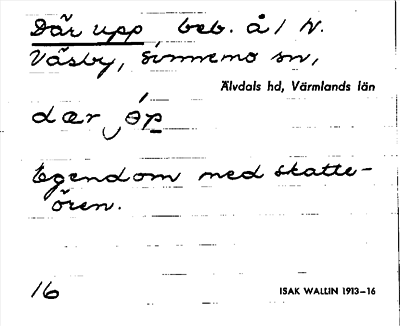 Där upp, beb. å 1 N.
Väsby, Sunnemo sn,
Älvdals hd, Värmlands län
dær ‿ɵ́p
Egendom med skatte-
ören.
16
ISAK WALLIN 1913–16